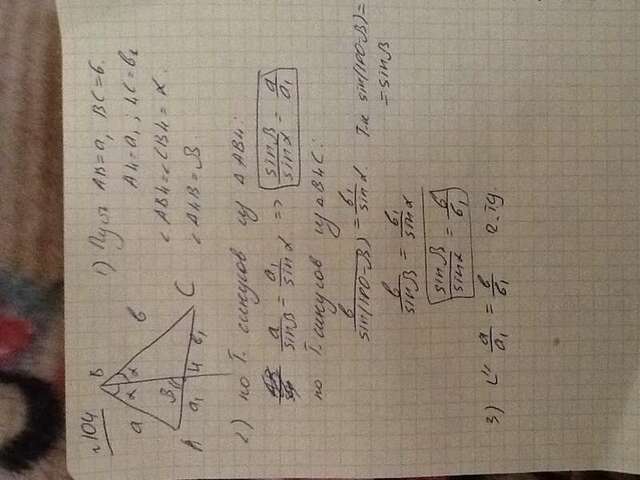 №104
B
a
α
α
b
β
A
a₁
H
b₁
C
1) Пусть AB=a, BC=b.
AH=a₁; HC=b₁
∠ABH=∠CBH=α
∠AHB=β.
2) по Т. синусов из ΔABH:
a/sinβ = a₁/sinα => sinβ/sinα = a/a₁
по Т. синусов из ΔBHC:
b/sin(180-β) = b₁/sinα. Т.к sin(180-β)=
=sinβ
b/sinβ = b₁/sinα
sinβ/sinα = b/b₁
3) a/a₁ = b/b₁ ч.тд.